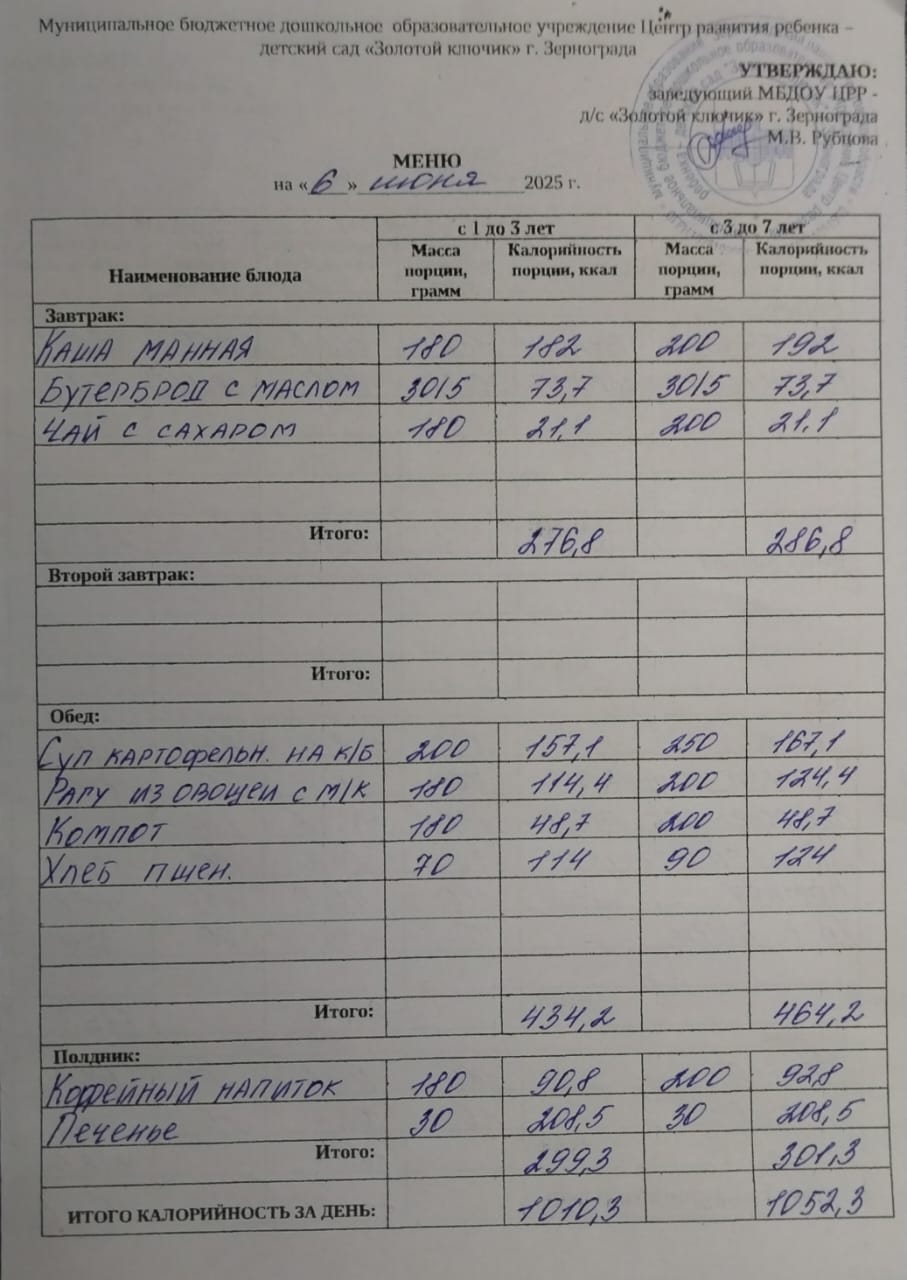 Муниципальное бюджетное дошкольное образовательное учреждение Центр развития ребенка –
детский сад «Золотой ключик» г. Зернограда
УТВЕРЖДАЮ:
заведующий МБДОУ ЦРР -
д/с «Золотой ключик» г. Зернограда
М.В. Рубцова
МЕНЮ
на «6» июня 2025 г.
Наименование блюда с 1 до 3 лет с 3 до 7 лет
Масса порции, грамм Калорийность порции, ккал Масса порции, грамм Калорийность порции, ккал
Завтрак:
Каша манная 180 182 200 192
Бутерброд с маслом 30/5 73,7 30/5 73,7
Чай с сахаром 180 21,1 200 21,1
Итого: 276,8 286,8
Второй завтрак:
Итого:
Обед:
Суп картофельн. на к/б 200 157,1 250 167,1
Рагу из овощей с м/к 180 114,4 200 124,4
Компот 180 48,7 200 48,7
Хлеб пшен. 70 114 90 124
Итого: 434,2 464,2
Полдник:
Кофейный напиток 180 90,8 200 92,8
Печенье 30 208,5 30 208,5
Итого: 299,3 301,3
ИТОГО КАЛОРИЙНОСТЬ ЗА ДЕНЬ: 1010,3 1052,3